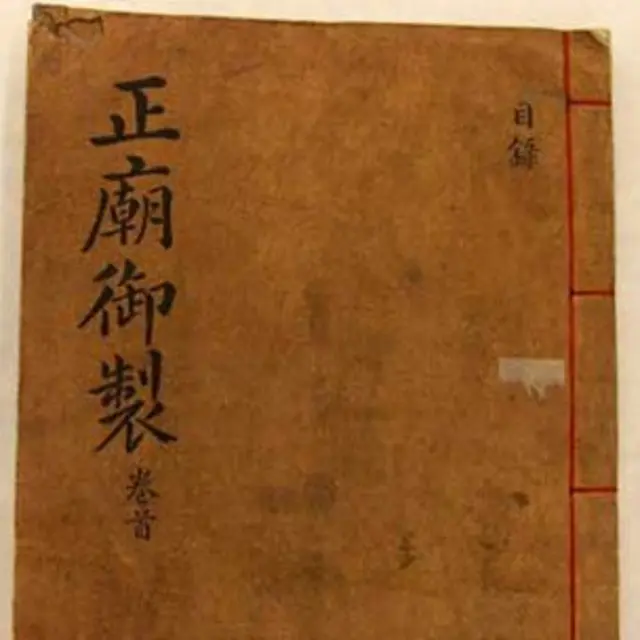 目錄
正廟御製
卷首